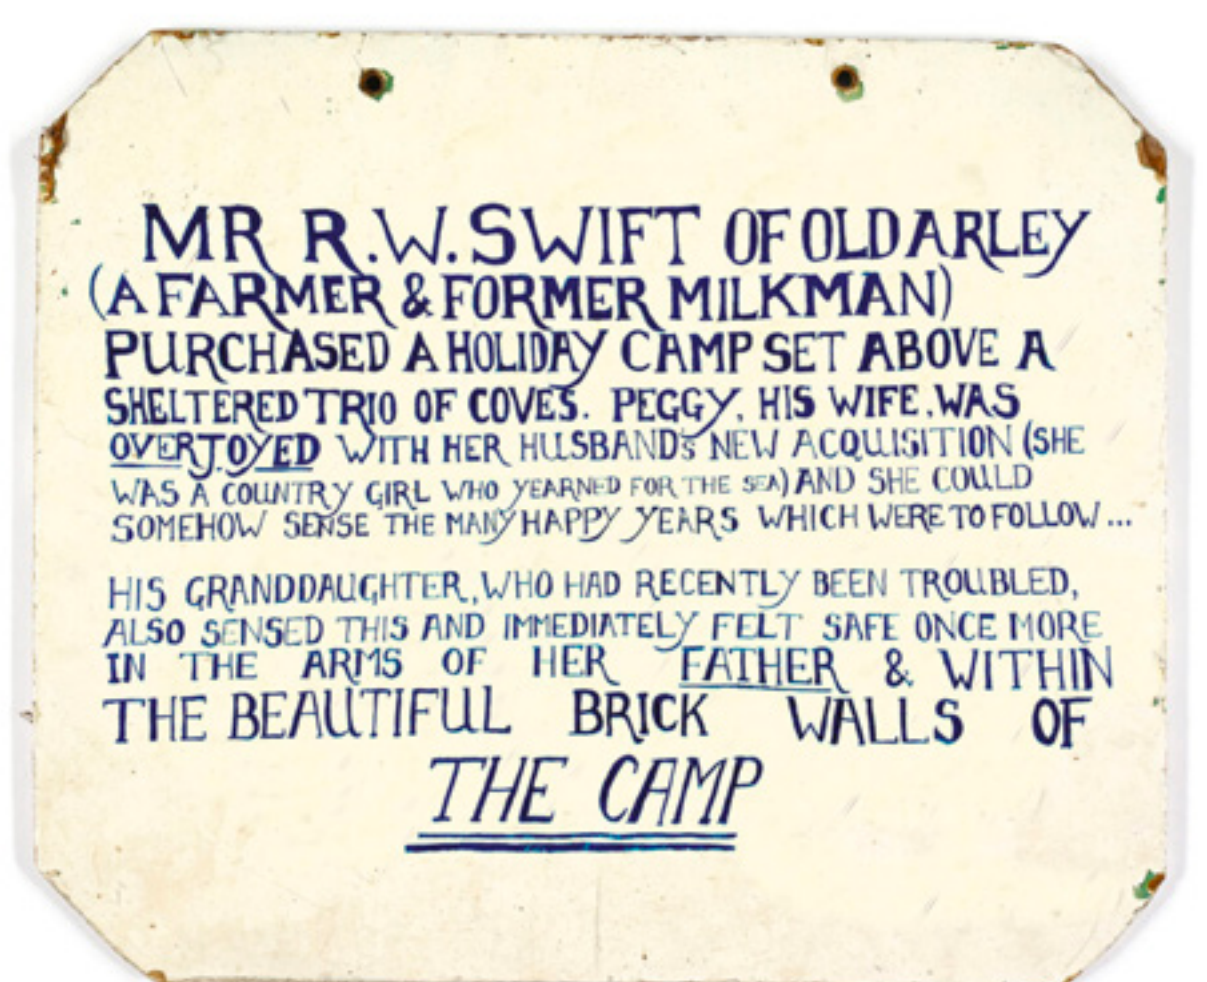 MR R.W. SWIFT OF OLD ARLEY
(A FARMER & FORMER MILKMAN)
PURCHASED A HOLIDAY CAMP SET ABOVE A
SHELTERED TRIO OF COVES. PEGGY, HIS WIFE, WAS
OVERJOYED WITH HER HUSBANDS NEW ACQUISITION (SHE
WAS A COUNTRY GIRL WHO YEARNED FOR THE SEA) AND SHE COULD
SOMEHOW SENSE THE MANY HAPPY YEARS WHICH WERE TO FOLLOW...
HIS GRANDDAUGHTER, WHO HAD RECENTLY BEEN TROUBLED,
ALSO SENSED THIS AND IMMEDIATELY FELT SAFE ONCE MORE
IN THE ARMS OF HER FATHER & WITHIN
THE BEAUTIFUL BRICK WALLS OF
THE CAMP